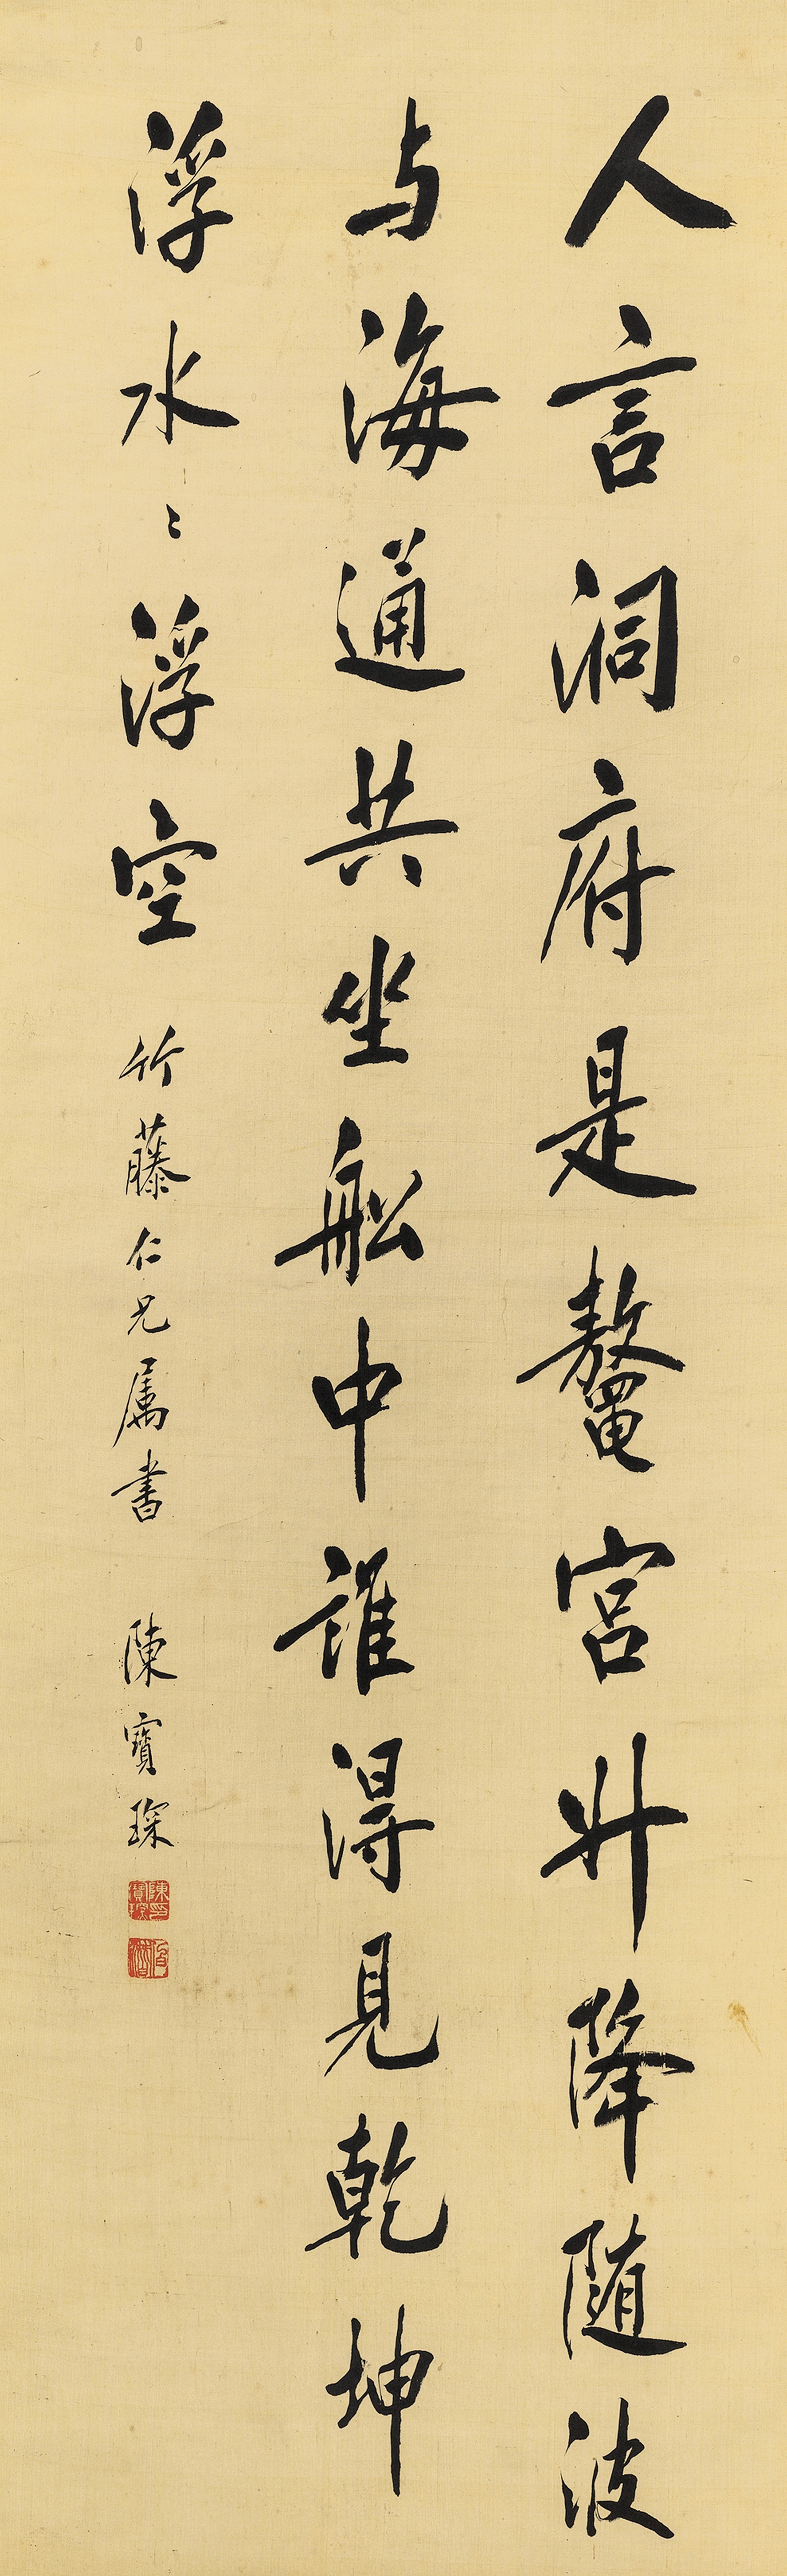 人言洞府是鼇宮升降随波
与海通共坐船中誰得見乾坤
浮水〻浮空
竹藤仁兄属書
陳寶琛